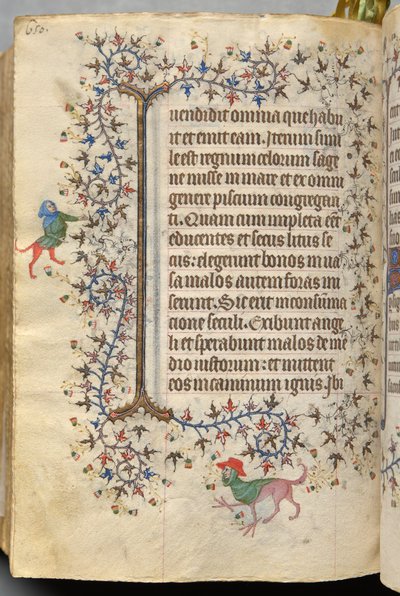 650.
uendidit omnia que habu
it et emit eam. Iterum simi
le est regnum celorum sage
ne misse in mare et ex omni
genere piscium congregan
ti. Quam cum impleta eēt
educentes et secus litus se
: elegerunt bonos in ua
sa malos autem foras mi
serunt. Sic erit in consūma
cione seculi. Exibunt ange
li et sperabunt malos de me
dio iustorum: et mittent
eos in caminum ignis. Ibi